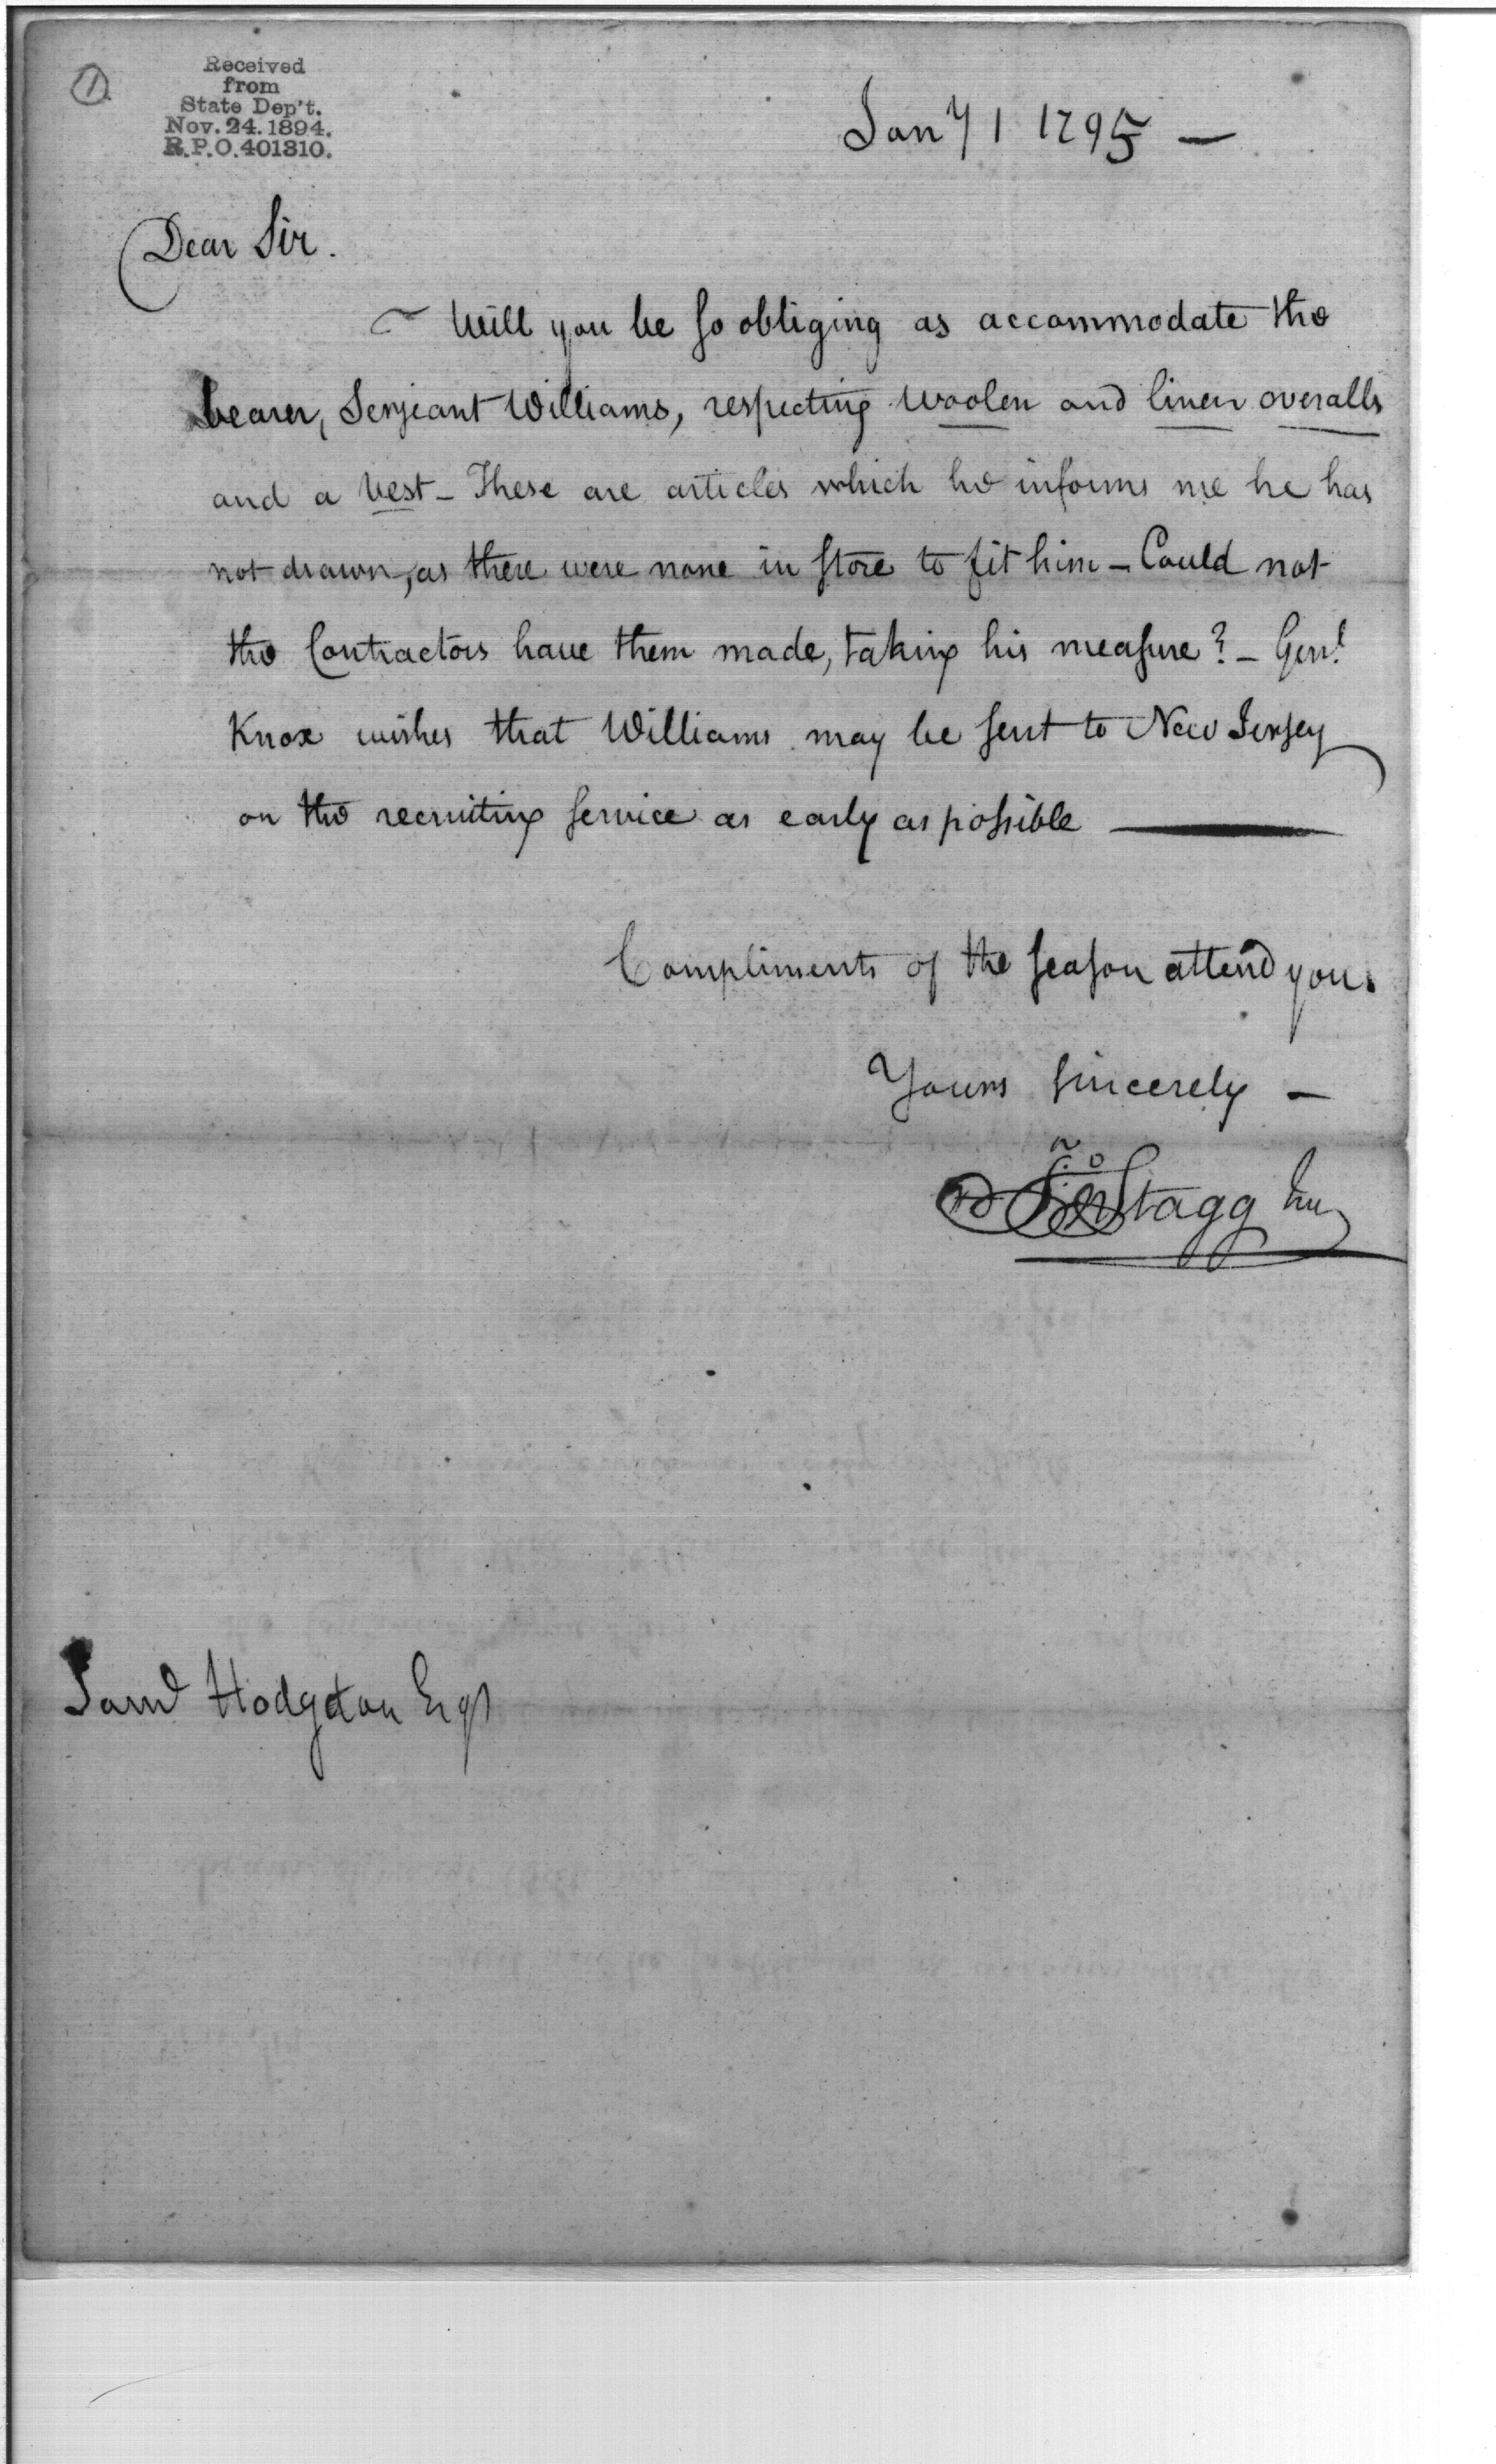 1
Received
from
State Dep't.
Nov. 24. 1894.
R.P.O. 401310.
Jan y 1 1795 —
Dear Sir.
Will you be so obliging as accommodate the
bearer, Serjeant Williams, respecting woolen and linen overalls
and a vest – These are articles which he informs me he has
not drawn, as there were none in store to fit him – Could not
the Contractors have them made, taking his measure? – Genl
Knox wishes that Williams may be sent to New Jersey
on the recruiting service as early as possible —
Compliments of the season attend you.
Yours sincerely –
Jno Stagg Jun
Saml Hodgdon Esqr